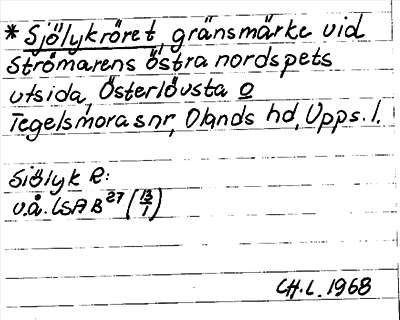 * Sjölykröret, gränsmärke vid
Strömarens östra nordspets
utsida, Österlövsta o
Tegelsmora snr, Olands hd, Upps. l.
Siölyk R:
u.å. LSA B 27 (13/1)
CH.L. 1968